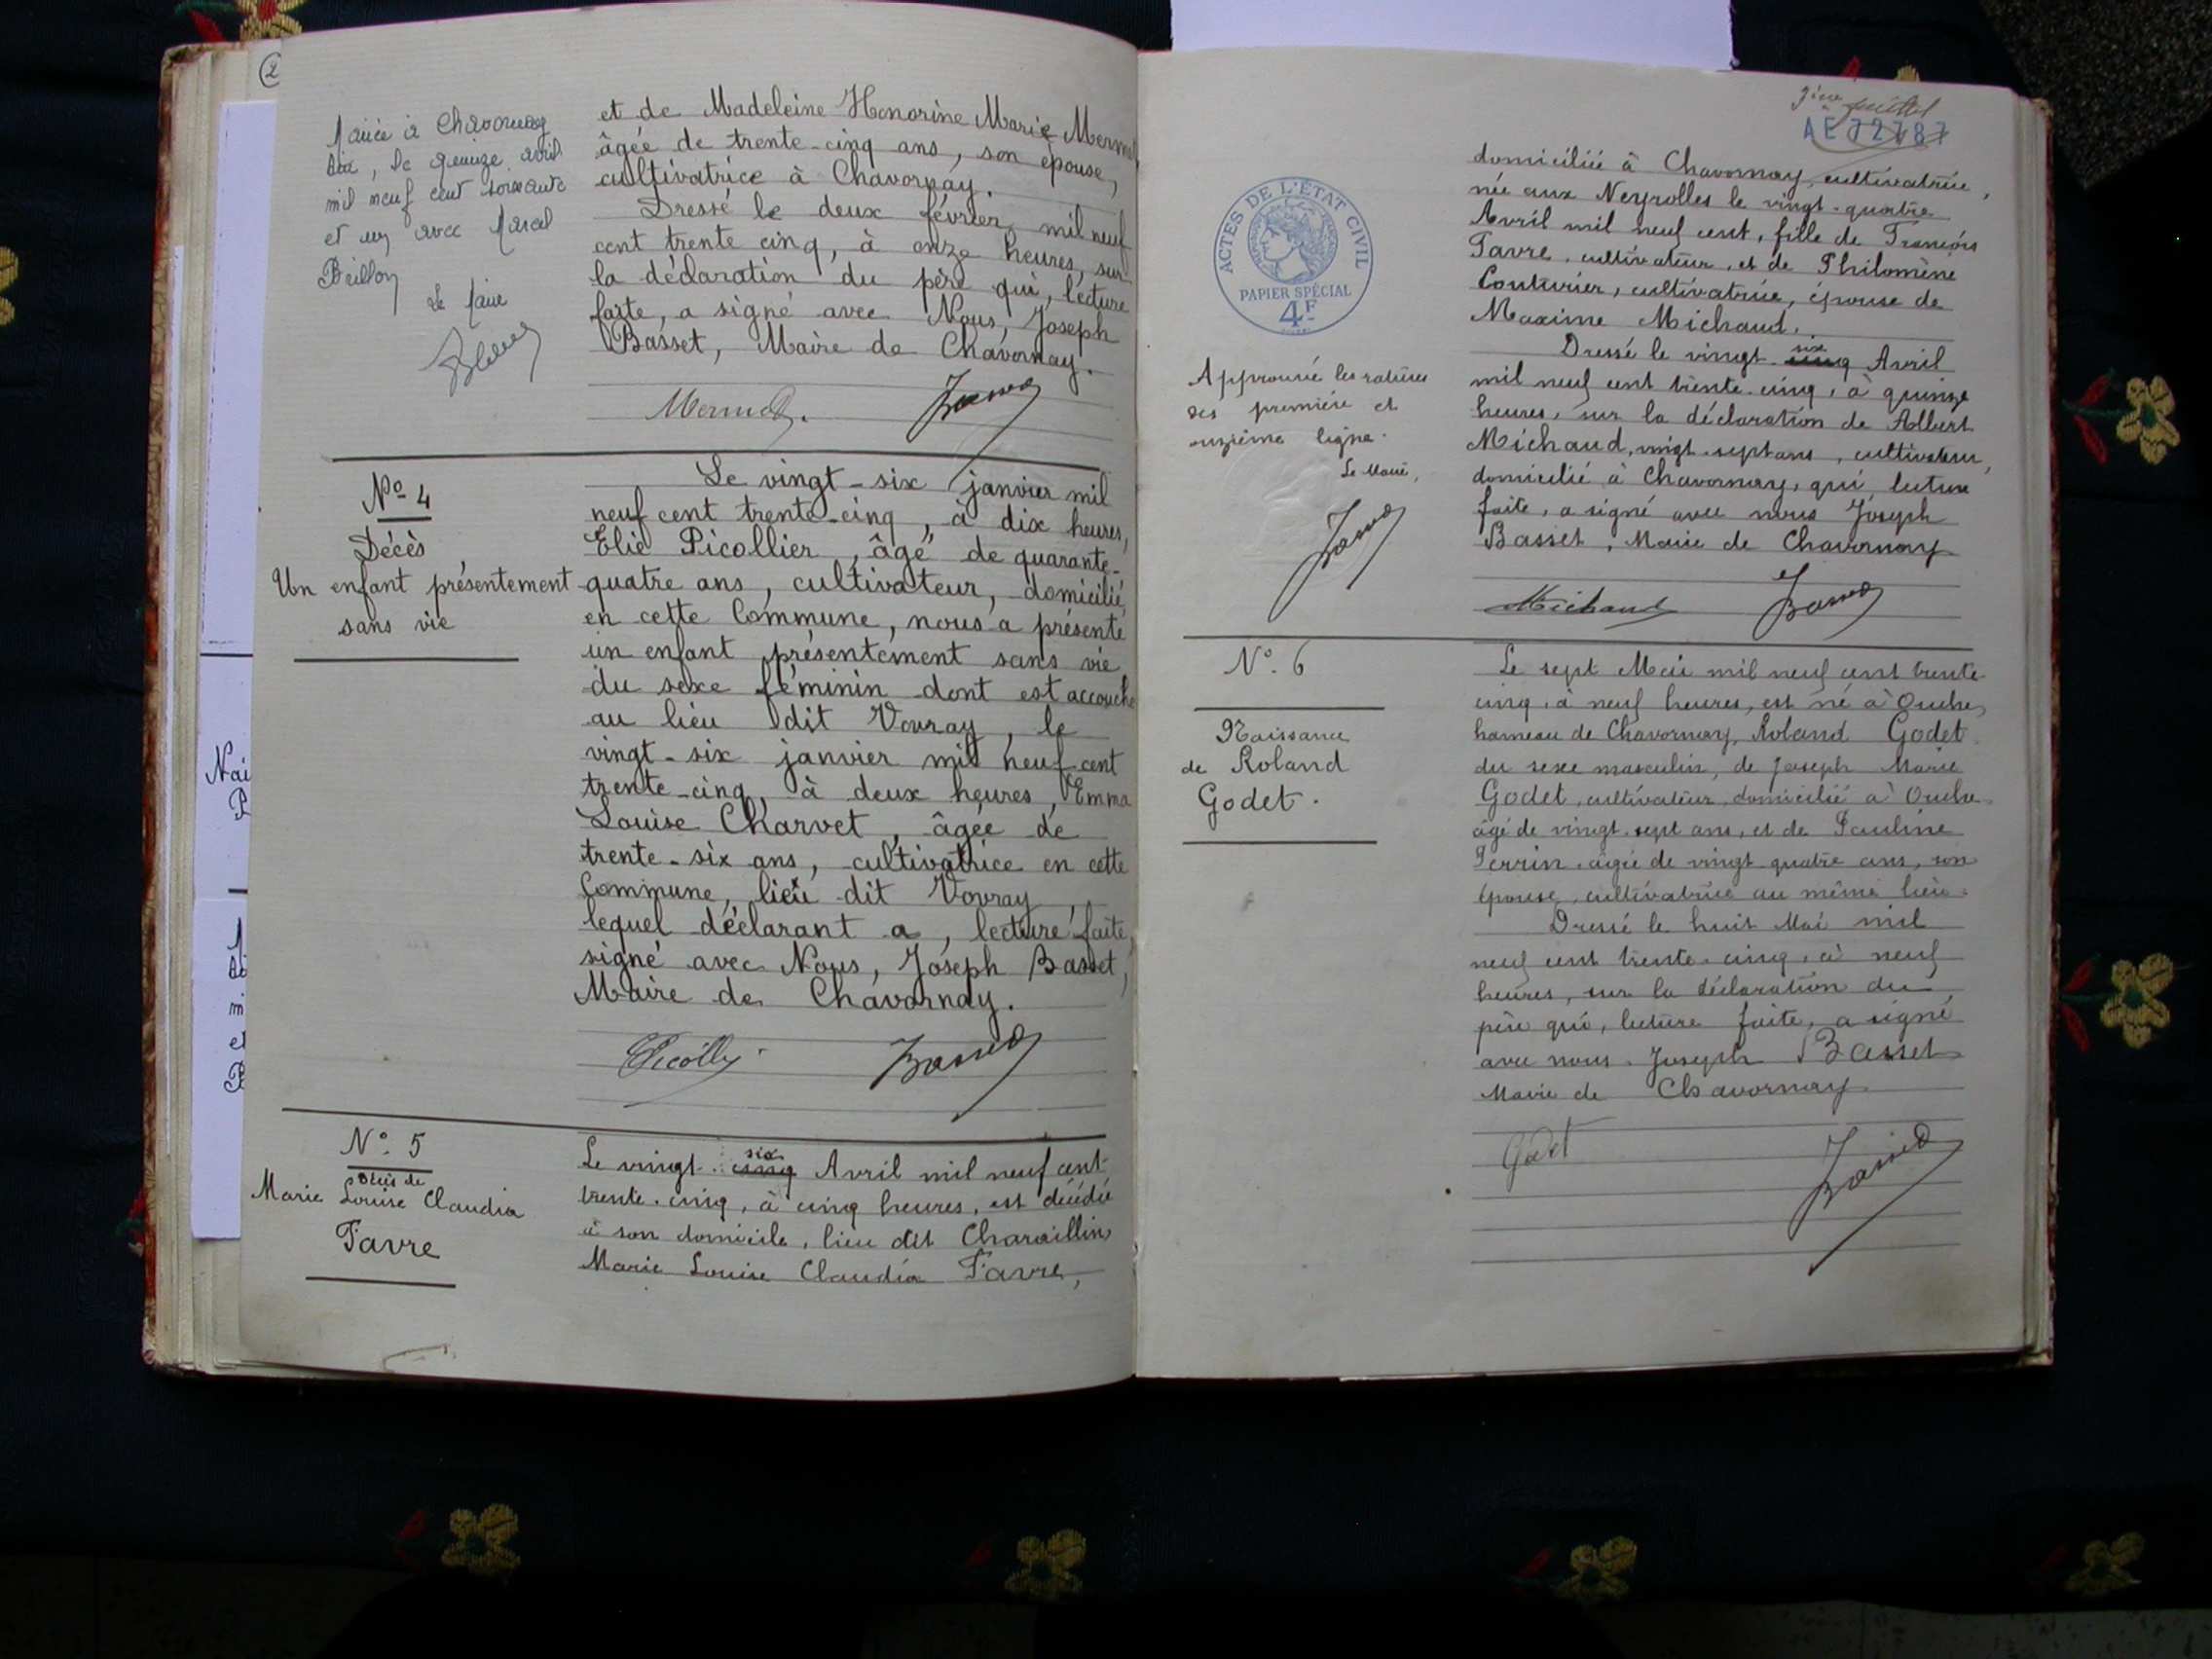 2
Mariée à Chavornay
Ain, le quinze avril
mil neuf cent soixante
et un avec Marcel
Le Maire
et de Madeleine Honorine Marie
âgée de trente-cinq ans, son épouse,
cultivatrice à Chavornay.
Dressé le deux février mil neuf
cent trente cinq, à onze heures, sur
la déclaration du père qui, lecture
faite, a signé avec Nous, Joseph
Basset, Maire de Chavornay.
No 4
Décès
Un enfant présentement
sans vie
Le vingt-six janvier mil
neuf cent trente-cinq, à dix heures,
Elie Picollier, âgé de quarante-
quatre ans, cultivateur, domicilié
en cette Commune, nous a présenté
un enfant présentement sans vie
du sexe féminin dont est accouché
au lieu dit Vovray, le
vingt-six janvier mil neuf cent
trente-cinq, à deux heures, Emma
Louise Charvet, âgée de
trente-six ans, cultivatrice en cette
Commune, lieu dit Vovray,
lequel déclarant a, lecture faite,
signé avec Nous, Joseph Basset,
Maire de Chavornay.
Basset
No 5
Décès de
Marie Louise Claudia
Favre
Le vingt-cinq six Avril mil neuf cent
trente-cinq, à cinq heures, est décédée
à son domicile, lieu dit Charaillin
Marie Louise Claudia Favre,
9ème feuillet
AE 72787
ACTES DE L'ÉTAT CIVIL
PAPIER SPÉCIAL
4F
domiciliée à Chavornay, cultivatrice,
née aux Neyrolles le vingt-quatre
Avril mil neuf cent, fille de François
Favre, cultivateur, et de Philomène
Couturier, cultivatrice, épouse de
Maxime Michaud.
Dressé le vingt-cinq six Avril
mil neuf cent trente-cinq, à quinze
heures, sur la déclaration de Albert
Michaud, vingt-sept ans, cultivateur,
domicilié à Chavornay, qui, lecture
faite, a signé avec nous Joseph
Basset, Maire de Chavornay
Approuvé les ratures
des première et
onzième ligne.
Le Maire,
Basset
Michaud
Basset
No 6
Naissance
de Roland
Godet.
Le sept Mai mil neuf cent trente
cinq, à neuf heures, est né à Ouche,
hameau de Chavornay, Roland Godet
du sexe masculin, de Joseph Marie
Godet, cultivateur, domicilié à Ouche
âgé de vingt-sept ans, et de Pauline
Perrin, âgée de vingt quatre ans, son
épouse, cultivatrice au même lieu.
Dressé le huit Mai mil
neuf cent trente-cinq, à neuf
heures, sur la déclaration du
père qui, lecture faite, a signé
avec nous Joseph Basset
Maire de Chavornay
Godet
Basset